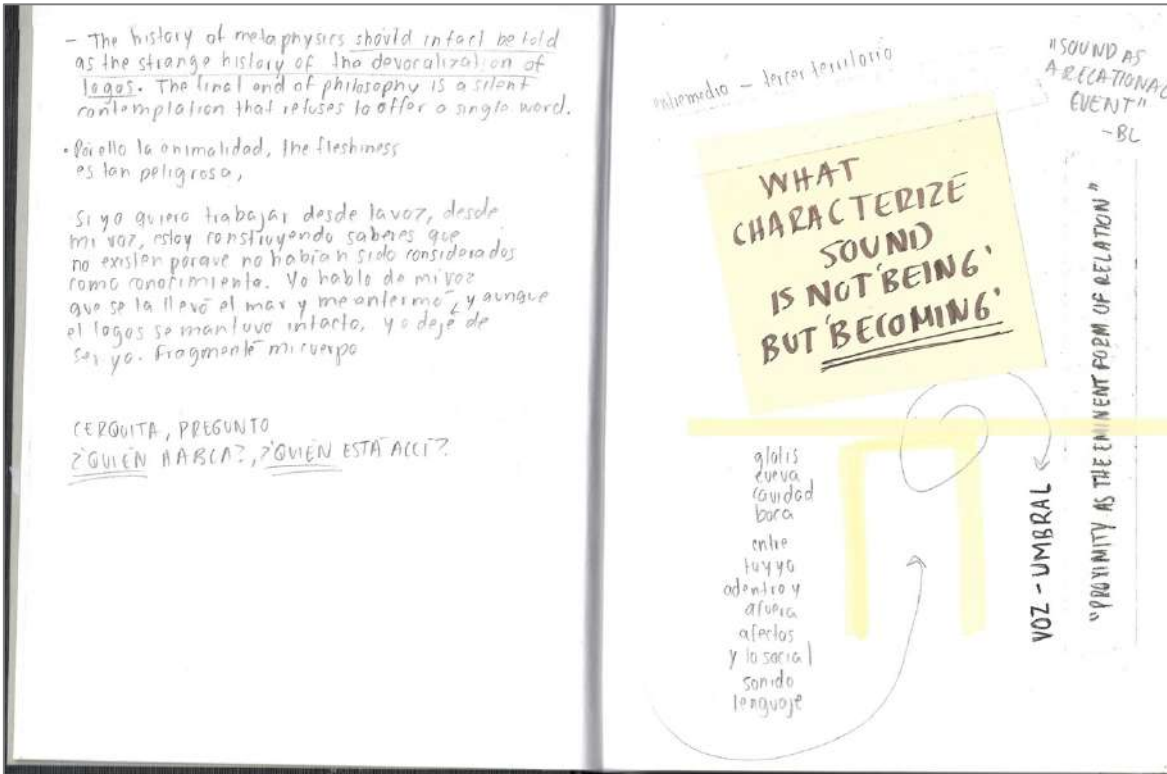 - The history of metaphysics should infact be told
as the strange history of the devocalization of
logos. The final end of philosophy is a silent
contemplation that refuses to offer a single word.
• Por ello la animalidad, the fleshiness
es tan peligrosa,
Si yo quiero trabajar desde la voz, desde
mi voz, estoy construyendo saberes que
no existen porque no habían sido considerados
como conocimiento. Yo hablo de mi voz
que se la llevó el mar y me enfermó, y aunque
el logos se mantuvo intacto, yo dejé de
ser yo. Fragmenté mi cuerpo
CERQUITA, PREGUNTO
?QUIÉN HABLA?, ?QUIÉN ESTÁ ALLÍ?
entremedio - tercer territorio
"SOUND AS
A RELATIONAL
EVENT"
-BL
WHAT
CHARACTERIZE
SOUND
IS NOT 'BEING'
BUT 'BECOMING'
glotis
cueva
cavidad
boca
entre
tu y yo
adentro y
afuera
afectos
y lo social
sonido
lenguaje
VOZ - UMBRAL
"PROXIMITY AS THE EMINENT FORM OF RELATION"